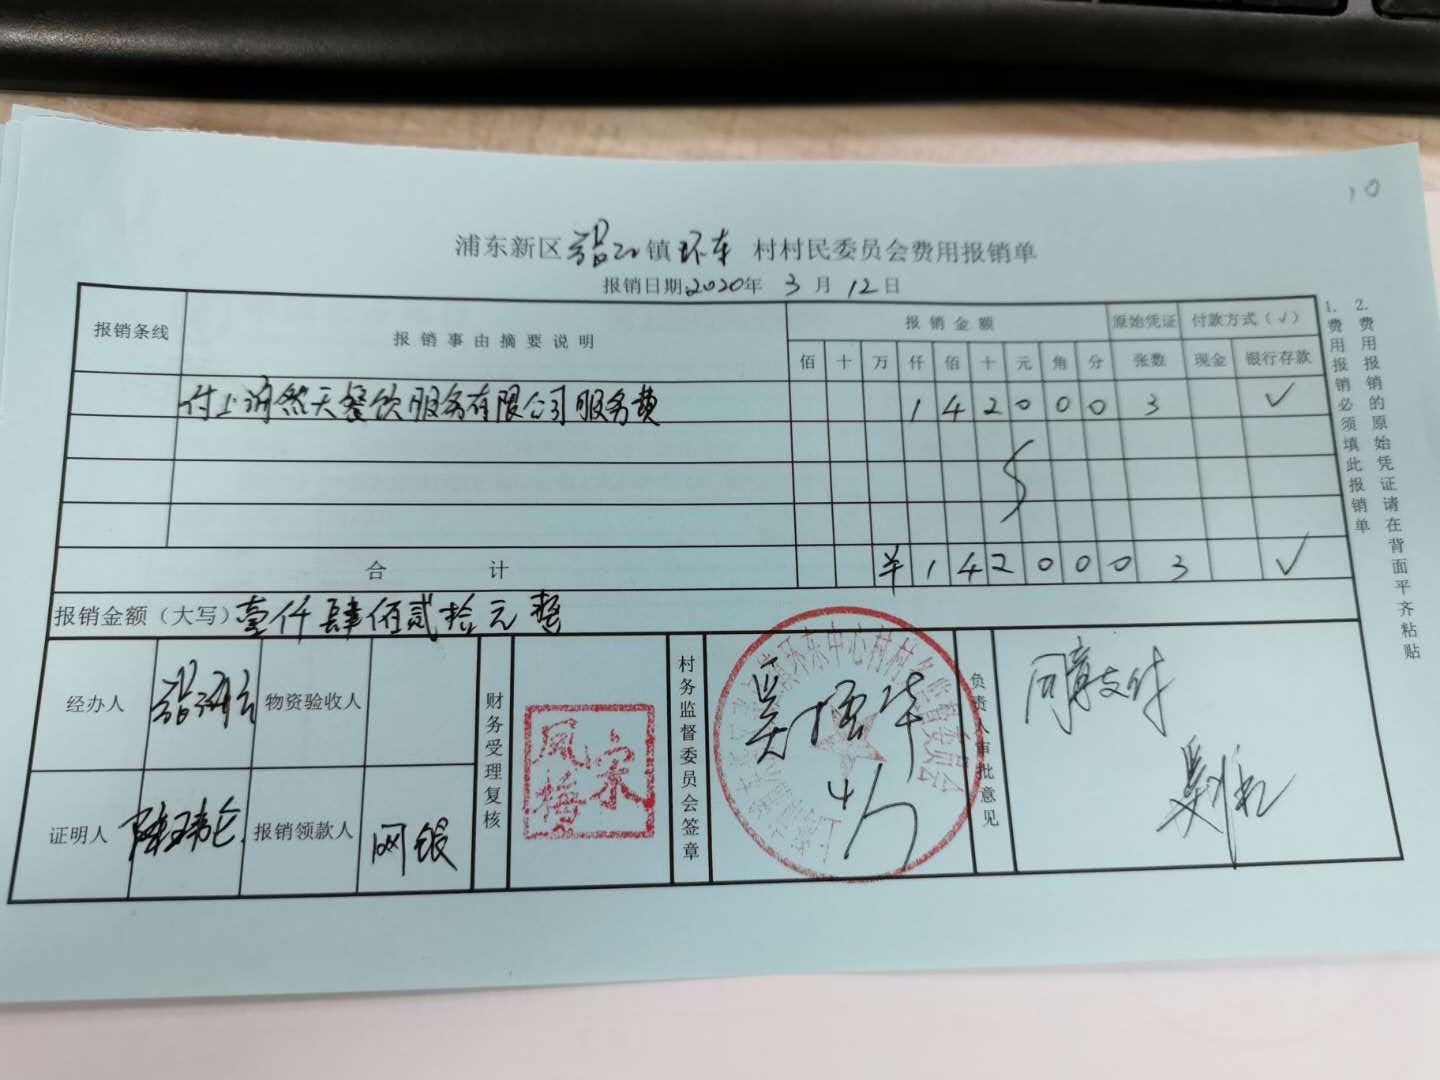 10
浦东新区 张江 镇 环东 村村民委员会费用报销单
报销日期 2020年 3 月 12 日
报销条线 报销事由摘要说明 报销金额 原始凭证 付款方式（√）
佰 十 万 仟 佰 十 元 角 分 张数 现金 银行存款
付上海然天餐饮服务有限公司服务费 1 4 2 0 0 0 3 √
合计 ¥ 1 4 2 0 0 0 3 √
报销金额（大写）壹仟肆佰贰拾元整
经办人 物资验收人
证明人 报销领款人 网银
财务受理复核
宋凤梅
村务监督委员会签章
环东中心村村务监督委员会
负责人审批意见
同意支付
1. 费用报销必须填此报销单
2. 费用报销的原始凭证请在背面平齐粘贴